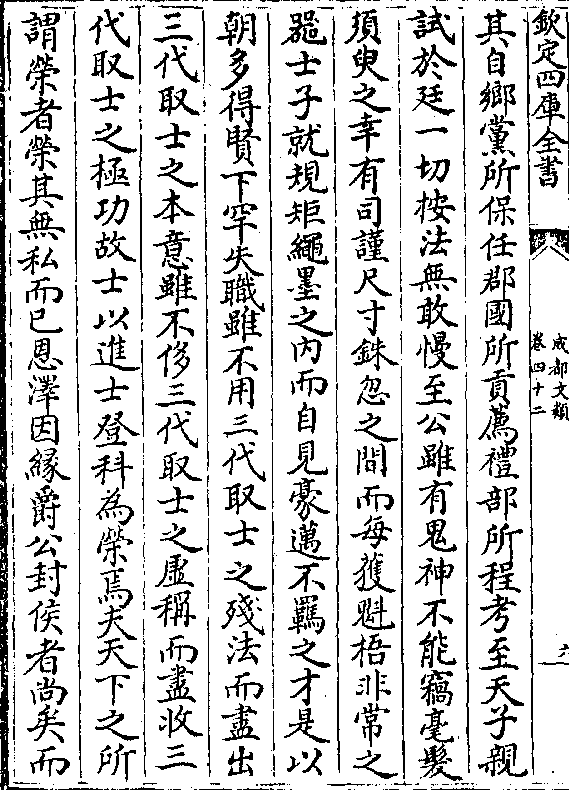 欽定四庫全書
成都文類
卷四十二
六
其自鄉黨所保任郡國所貢薦禮部所程考至天子親
試於廷一切按法無敢慢至公雖有鬼神不能竊毫髮
須臾之幸有司謹尺寸銖忽之間而每獲魁梧非常之
器士子就規矩繩墨之内而自見豪邁不羈之才是以
朝多得賢下罕失職雖不用三代取士之殘法而盡出
三代取士之本意雖不侈三代取士之虛稱而盡收三
代取士之極功故士以進士登科為榮焉夫天下之所
謂榮者榮其無私而已恩澤因緣爵公封侯者尚矣而